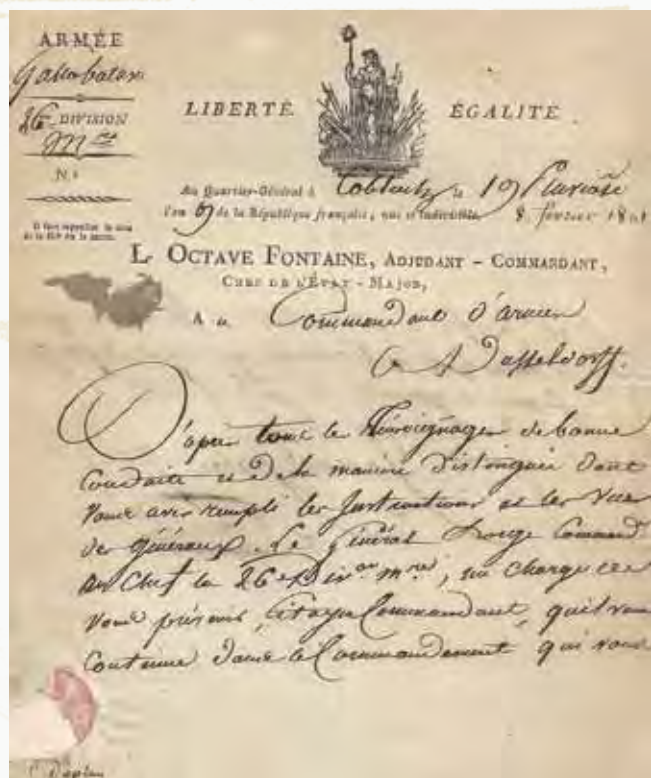 ARMÉE
Gallobatave
26e DIVISION
Mre
LIBERTÉ. ÉGALITÉ.
N.º
Au Quartier-Général à Coblentz le 19 Pluviose
l'an 9 de la République française, une et indivisible 8 février 1801
Il faut rappeler
L. OCTAVE FONTAINE, ADJUDANT - COMMANDANT,
CHEF DE L'ÉTAT - MAJOR,
Au Commandant d'armes
à Dusseldorff.
D'après tous les Témoignages de bonne
Conduite et de la manière distinguée dont
vous avez rempli les Instructions et les vues
des Généraux. Le Général Command
en Chef la 26e Divon mre, me charge de
vous prévenir, Citoyen Commandant, qu'il vous
Continue dans le Commandement qui vous